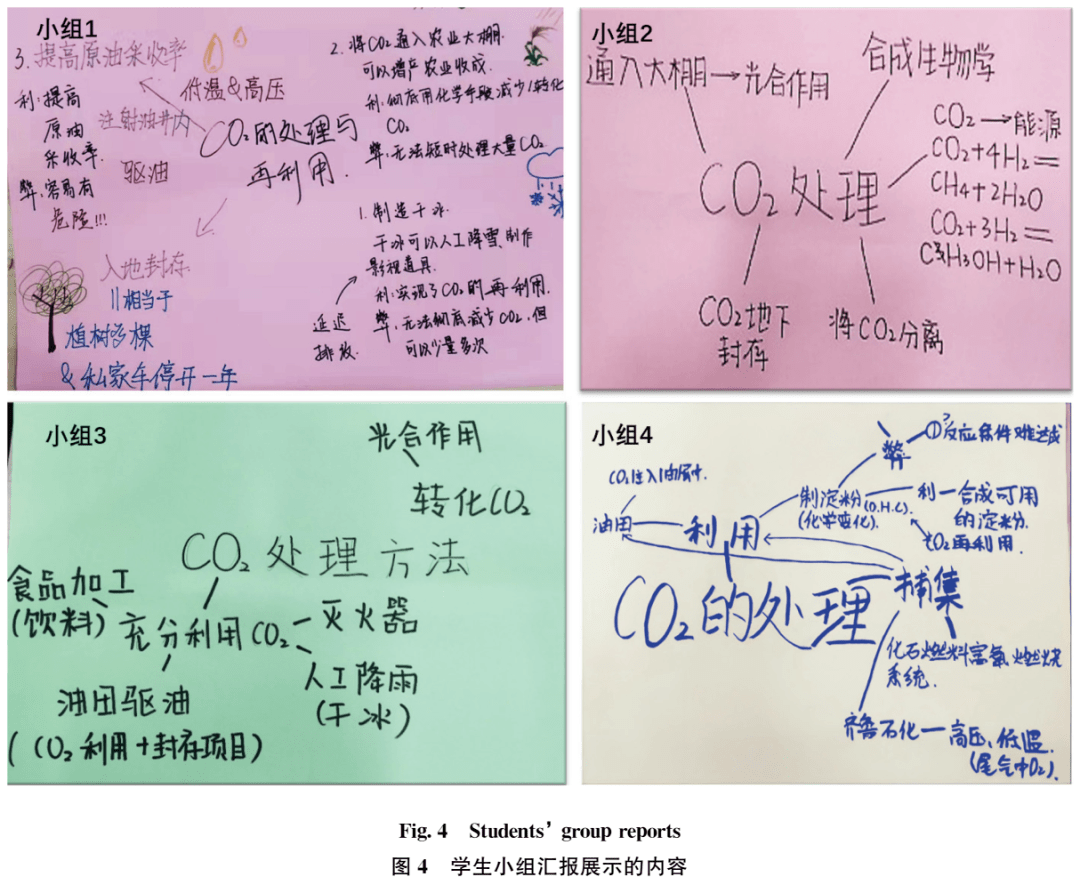 小组1
3. 提高原油采收率
低温&高压
利:提高
原油
采收率.
弊:容易有
危险!!!
注射油井内
驱油
入地封存
||相当于
植树多棵
&私家车停开一年
CO₂的处理与
再利用.
2. 将CO₂通入农业大棚.
可以增产农业收成.
利:彻底用化学手段减少/转化
CO₂
弊:无法短时处理大量CO₂.
1. 制造干冰.
干冰可以人工降雪、制作
影视道具.
利:实现了CO₂的再利用.
弊:无法彻底减少CO₂,但
可以少量多次
延迟
排放.
小组2
通入大棚→光合作用
合成生物学
CO₂处理
CO₂→能源
CO₂+4H₂=
CH4+2H₂O
CO₂+3H₂=
CH3OH+H₂O
CO₂地下
封存
将CO₂分离
小组3
光合作用
转化CO₂
CO₂处理方法
食品加工
(饮料)
充分利用CO₂
灭火器
人工降雨
(干冰)
油田驱油
(CO₂利用+封存项目)
小组4
弊
①反应条件难达成
CO₂注入油层中.
油田
利用
制淀粉(O.H.C).
(化学变化).
利—合成可用
的淀粉.
CO₂再利用.
CO₂的处理
捕集
化石燃料富氧燃烧
系统.
齐鲁石化—高压、低温.
(尾气中O₂).
Fig. 4 Students’ group reports
图 4 学生小组汇报展示的内容